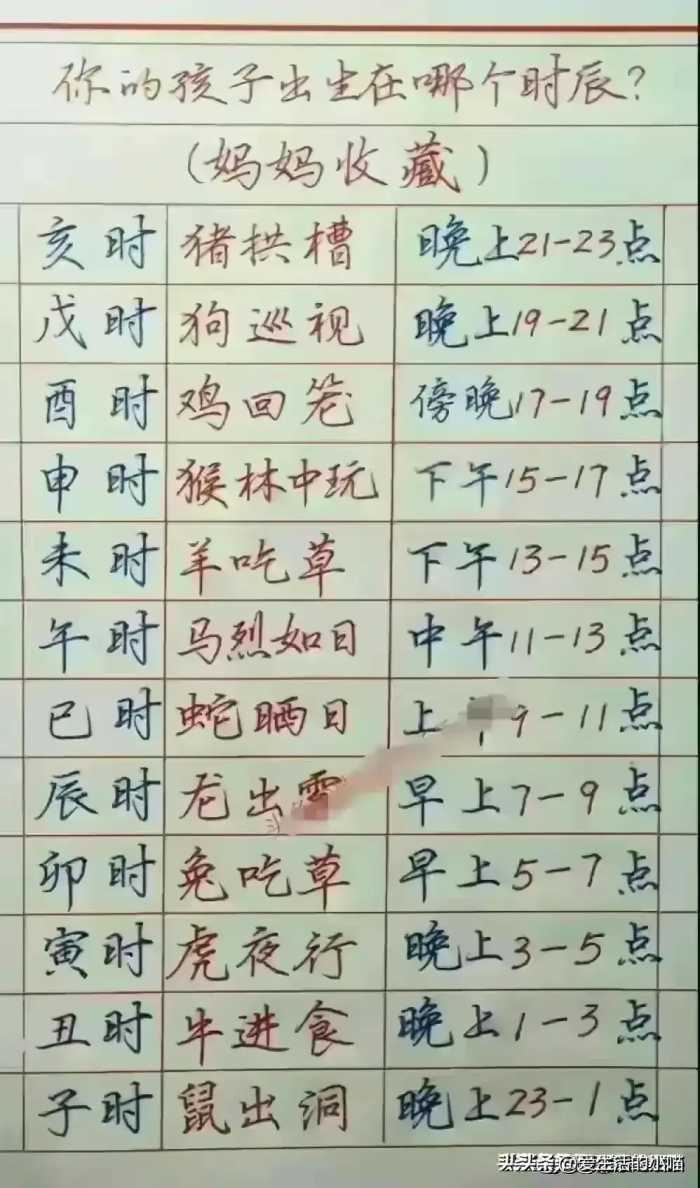 你的孩子出生在哪个时辰?
(妈妈收藏)
亥时 猪拱槽 晚上21-23点
戌时 狗巡视 晚上19-21点
酉时 鸡回笼 傍晚17-19点
申时 猴林中玩 下午15-17点
未时 羊吃草 下午13-15点
午时 马烈如日 中午11-13点
巳时 蛇晒日 上午9-11点
辰时 龙出雲 早上7-9点
卯时 兔吃草 早上5-7点
寅时 虎夜行 晚上3-5点
丑时 牛进食 晚上1-3点
子时 鼠出洞 晚上23-1点
头条@爱生活的小喵